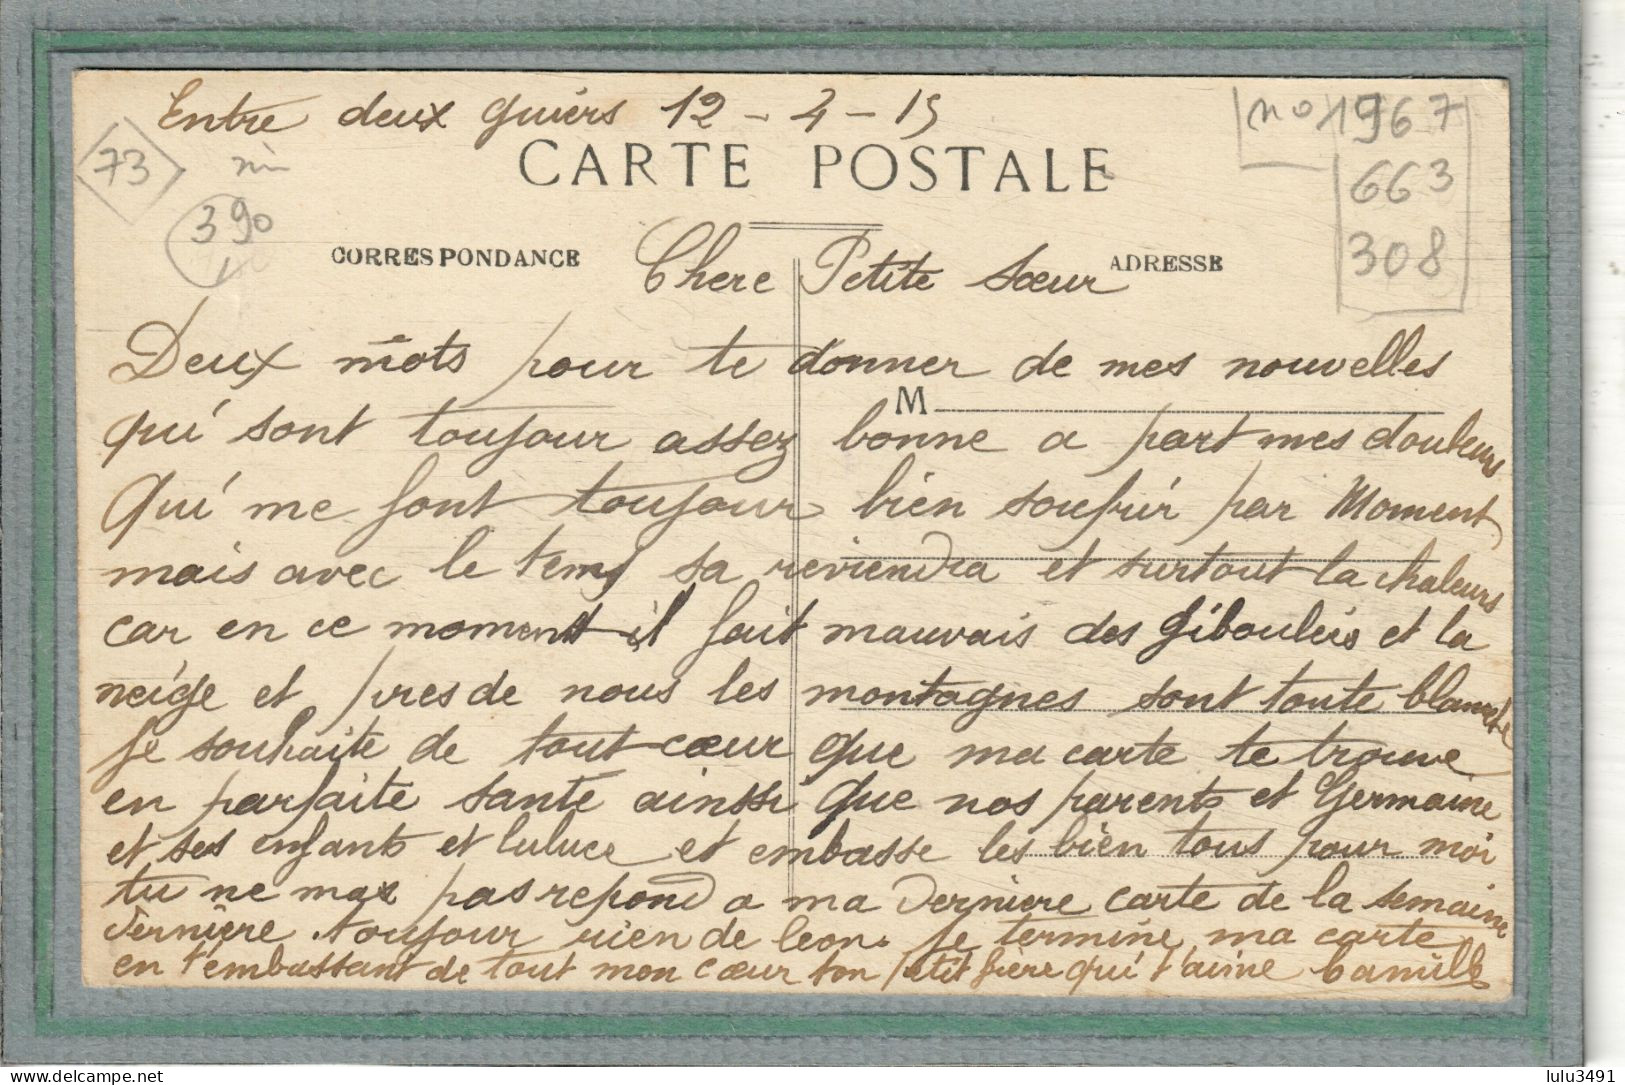 Entre deux guiers 12 - 4 - 15
CARTE POSTALE
73
390
no 1967
663
308
CORRESPONDANCE
ADRESSE
Chere Petite Sœur
Deux mots pour te donner de mes nouvelles
M
qui sont toujour assez bonne a part mes douleurs
Qui me font toujour bien soufrir par Moment
mais avec le temp sa reviendra et surtout la chaleurs
car en ce moment il fait mauvais des gibouleis et la
neige et pres de nous les montagnes sont toute blanche
Je souhaite de tout cœur que ma carte te trouve
en parfaite sante ainssi que nos parents et Germaine
et ses enfants et luluce et embasse les bien tous pour moi
tu ne mas pas repond a ma derniere carte de la semaine
dernière toujour rien de leon. Je termine ma carte
en t'embassant de tout mon cœur ton petit frère qui t'aime Camille
lulu3491
www.delcampe.net